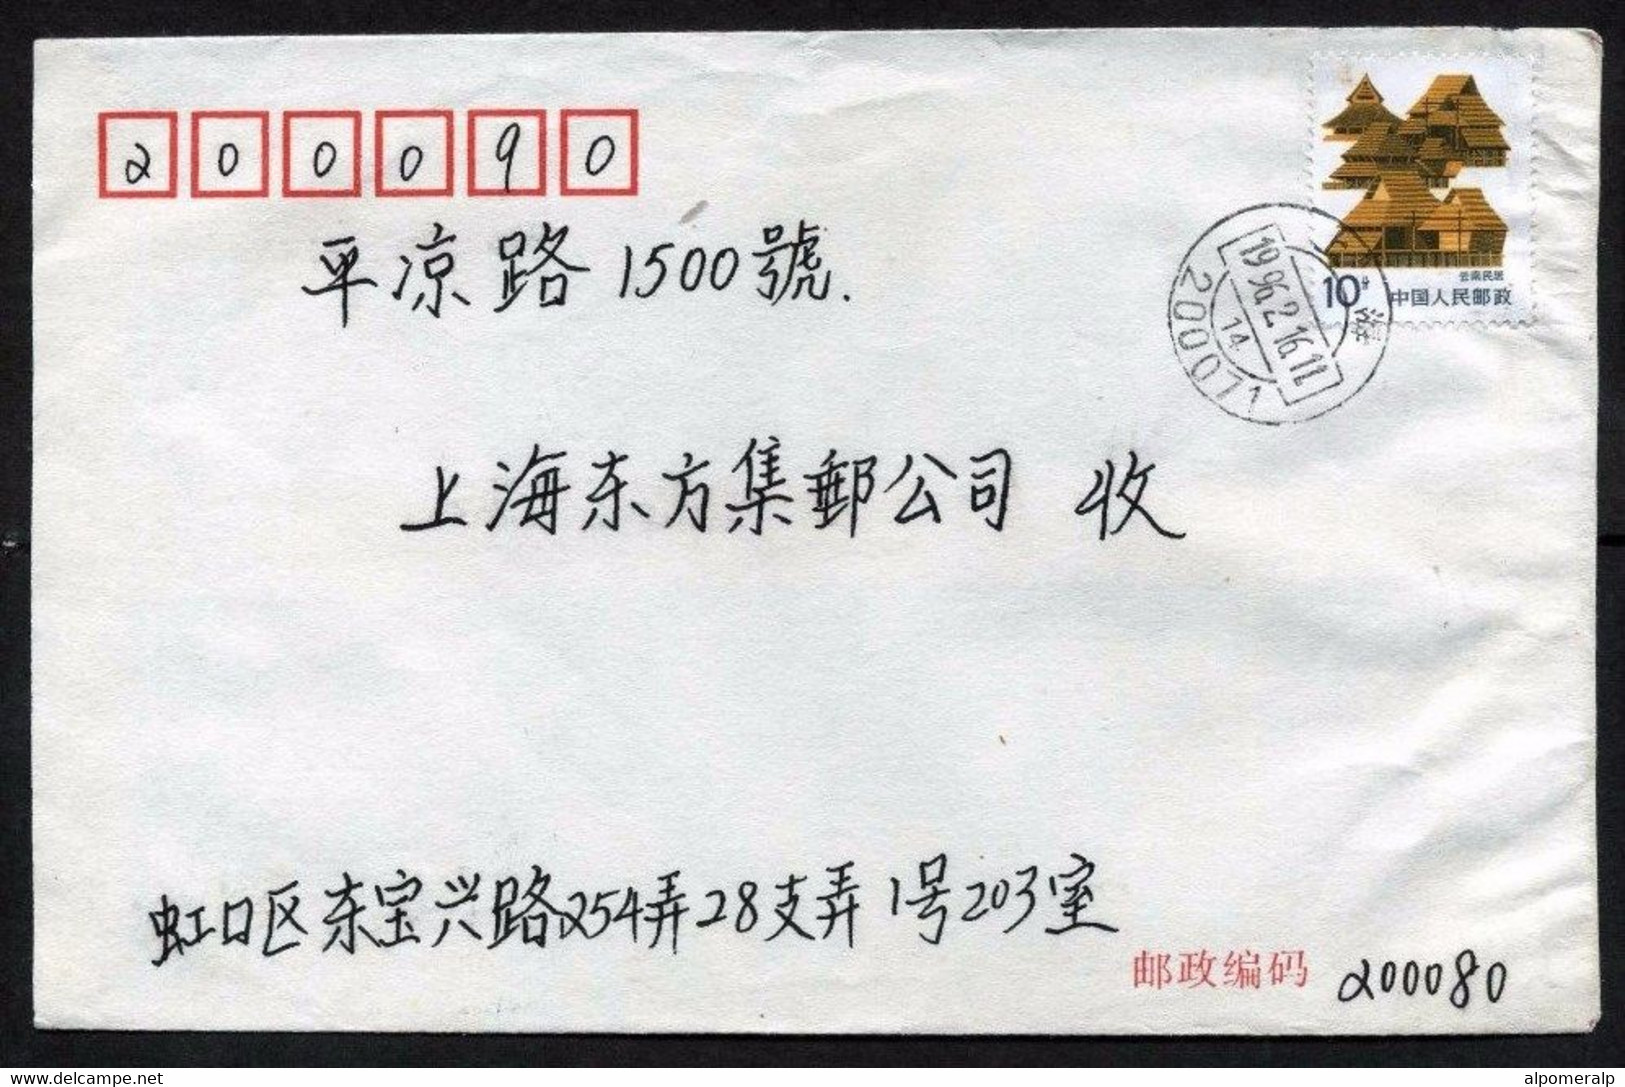 200090
平凉路1500號.
云南民居
10分 中国人民邮政
上海
1996.2.16.11
14
200071
上海东方集郵公司 收
虹口区东宝兴路254弄28支弄1号203室
邮政编码 200080
delcampe.net
alpomeralp